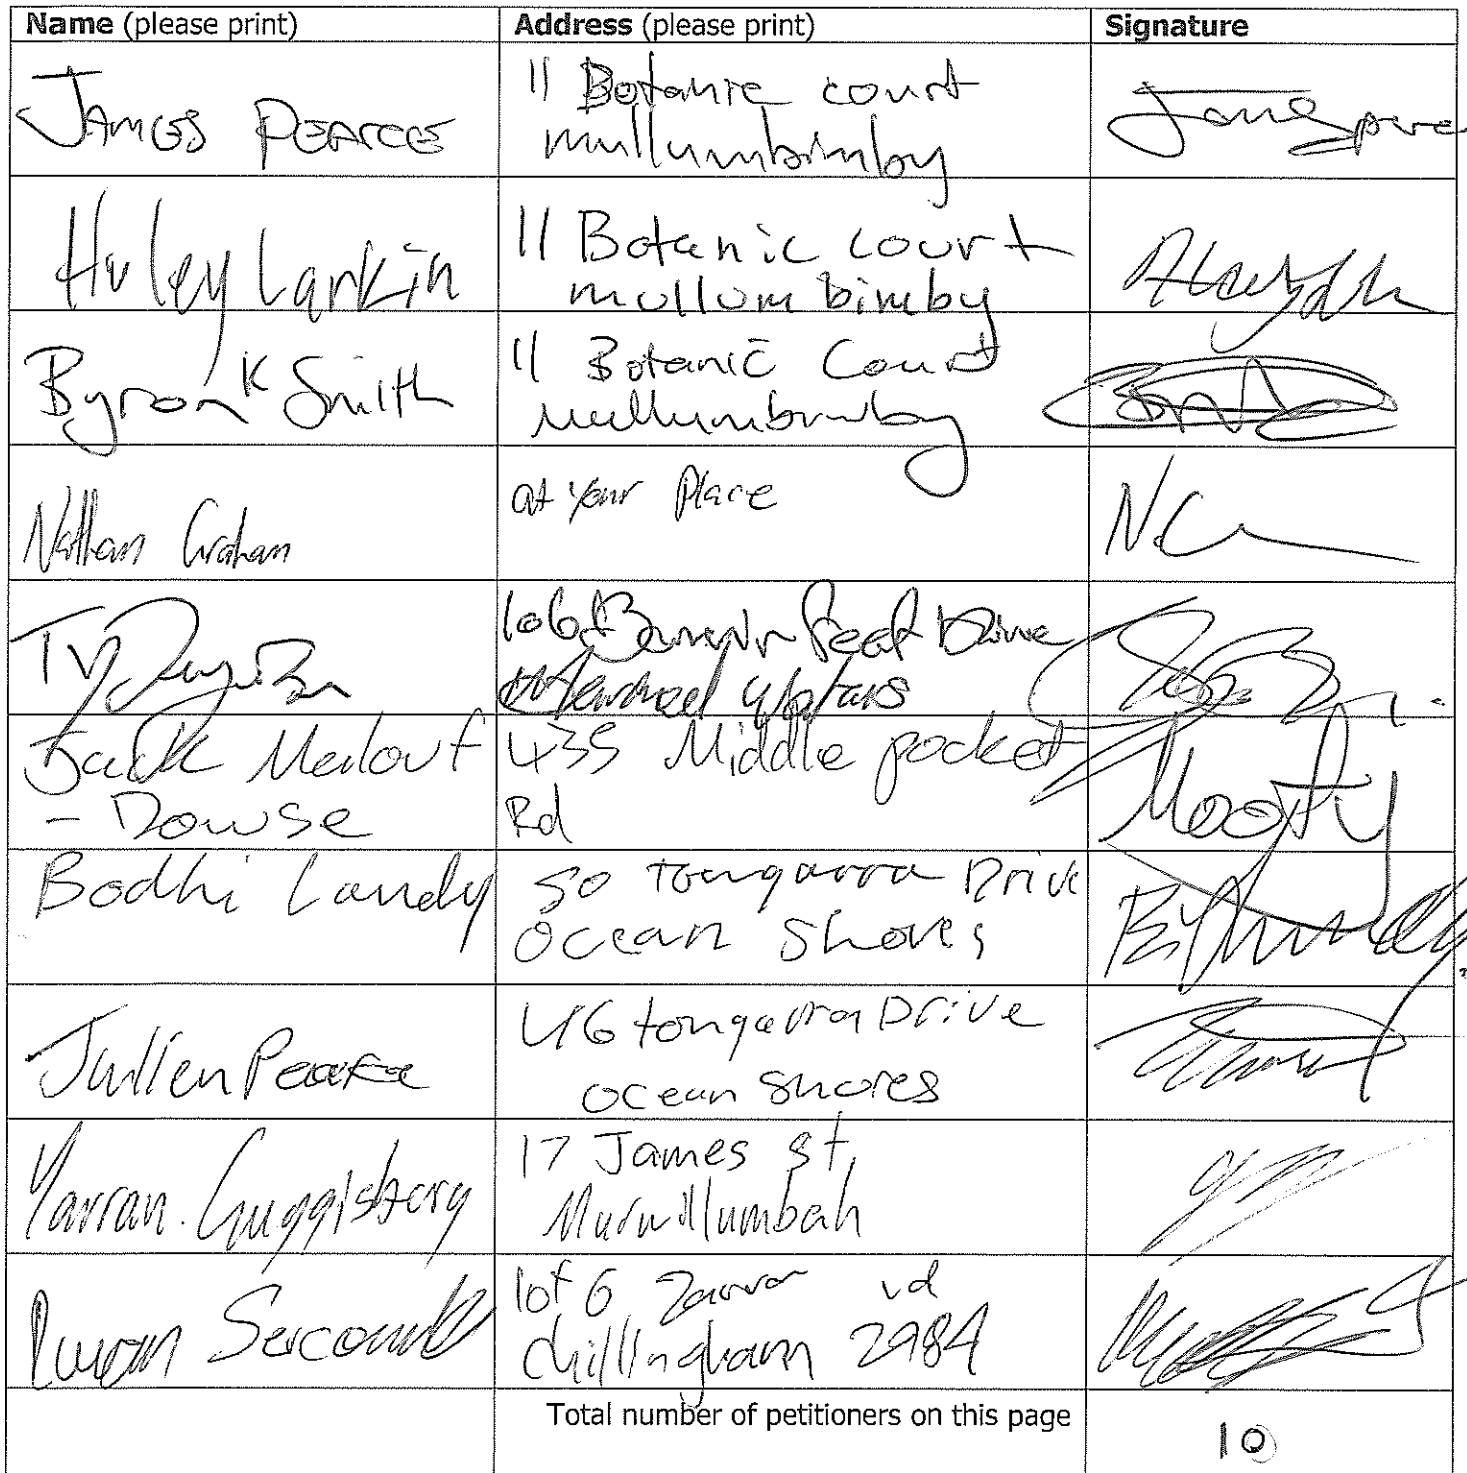 Name (please print) Address (please print) Signature
JAMES PEARCE
11 Botanic court
mullumbimby
Huley Larkin
11 Botanic court
mullumbimby
Byron K Smith
11 Botanic Court
Mullumbimby
Nathan Graham
at your Place
Ty
106 Drive
Jack Malouf
- Dowse
435 Middle pocket
Rd
Mooty
Bodhi Landy
50 tongarra Drive
Ocean Shores
Jullien
46 tongarra Drive
Ocean Shores
Yarran Guggisberg
17 James st
Murwillumbah
lot 6 rd
Chillingham 2984
Total number of petitioners on this page
10